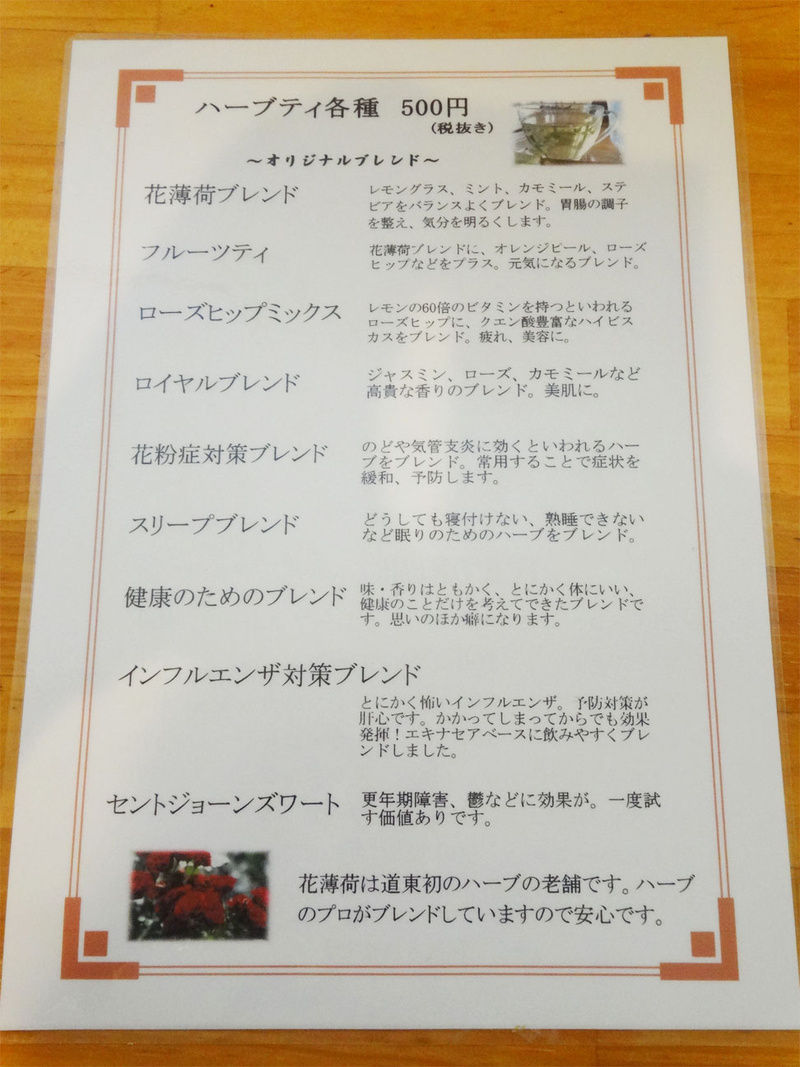 ハーブティ各種 500円
(税抜き)
～オリジナルブレンド～
花薄荷ブレンド
レモングラス、ミント、カモミール、ステ
ビアをバランスよくブレンド。胃腸の調子
を整え、気分を明るくします。
フルーツティ
花薄荷ブレンドに、オレンジピール、ローズ
ヒップなどをプラス。元気になるブレンド。
ローズヒップミックス
レモンの60倍のビタミンを持つといわれる
ローズヒップに、クエン酸豊富なハイビス
カスをブレンド。疲れ、美容に。
ロイヤルブレンド
ジャスミン、ローズ、カモミールなど
高貴な香りのブレンド。美肌に。
花粉症対策ブレンド
のどや気管支炎に効くといわれるハー
ブをブレンド。常用することで症状を
緩和、予防します。
スリープブレンド
どうしても寝付けない、熟睡できない
など眠りのためのハーブをブレンド。
健康のためのブレンド
味・香りはともかく、とにかく体にいい、
健康のことだけを考えてできたブレンドで
す。思いのほか癖になります。
インフルエンザ対策ブレンド
とにかく怖いインフルエンザ。予防対策が
肝心です。かかってしまってからでも効果
発揮！エキナセアベースに飲みやすくブレ
ンドしました。
セントジョーンズワート
更年期障害、鬱などに効果が。一度試
す価値ありです。
花薄荷は道東初のハーブの老舗です。ハーブ
のプロがブレンドしていますので安心です。